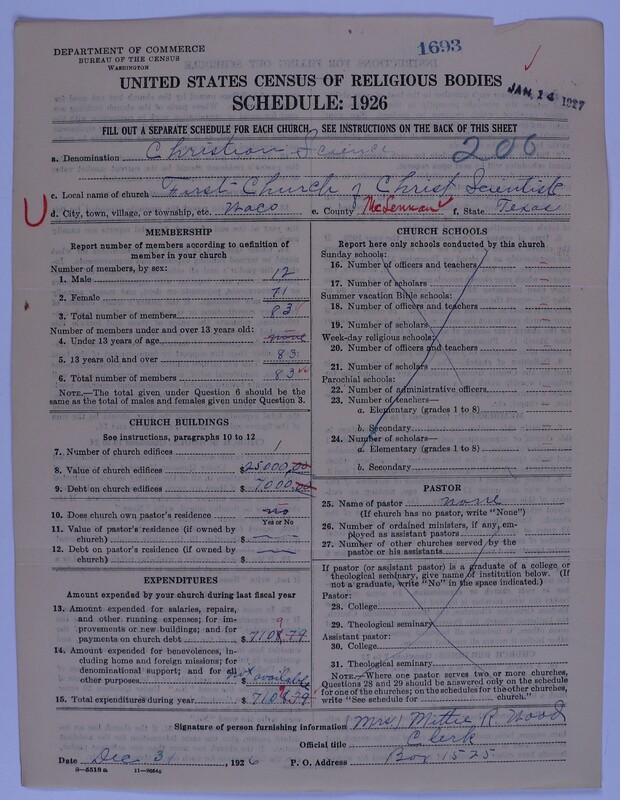 1693
DEPARTMENT OF COMMERCE
BUREAU OF THE CENSUS
WASHINGTON
JAN. 14 1927
UNITED STATES CENSUS OF RELIGIOUS BODIES
SCHEDULE: 1926
FILL OUT A SEPARATE SCHEDULE FOR EACH CHURCH. SEE INSTRUCTIONS ON THE BACK OF THIS SHEET
a. Denomination Christian Science 206
c. Local name of church First Church of Christ Scientist
d. City, town, village, or township, etc. Waco e. County McLennan f. State Texas
MEMBERSHIP
Report number of members according to definition of
member in your church
Number of members, by sex:
1. Male 12
2. Female 71
3. Total number of members 83
Number of members under and over 13 years old:
4. Under 13 years of age none
5. 13 years old and over 83
6. Total number of members 83
NOTE.—The total given under Question 6 should be
same as the total of males and females given under Question 3.
CHURCH BUILDINGS
See instructions, paragraphs 10 to 12
7. Number of church edifices 1
8. Value of church edifices $25000.00
9. Debt on church edifices $7,000.00
10. Does church own pastor's residence no
Yes or No
11. Value of pastor's residence (if owned by
church) $
12. Debt on pastor's residence (if owned by
church) $
EXPENDITURES
Amount expended by your church during last fiscal year
13. Amount expended for salaries, repairs,
and other running expenses; for im-
provements or new buildings; and for
payments on church debt $7108.79
9
14. Amount expended for benevolences, in-
cluding home and foreign missions; for
denominational support; and for all
other purposes not available
15. Total expenditures during year $7108.79
CHURCH SCHOOLS
Report here only schools conducted by this church
Sunday schools:
16. Number of officers and teachers
17. Number of scholars
Summer vacation Bible schools:
18. Number of officers and teachers
19. Number of scholars
Week-day religious schools:
20. Number of officers and teachers
21. Number of scholars
Parochial schools:
22. Number of administrative officers
23. Number of teachers—
a. Elementary (grades 1 to 8)
b. Secondary
24. Number of scholars—
a. Elementary (grades 1 to 8)
b. Secondary
PASTOR
25. Name of pastor none
(If church has no pastor, write "None")
26. Number of ordained ministers, if any, em-
ployed as assistant pastors
27. Number of other churches served by the
pastor or his assistants
If pastor (or assistant pastor) is a graduate of a college or
theological seminary, give name of institution below. (If
not a graduate, write "No" in the space indicated.)
Pastor:
28. College
29. Theological seminary
Assistant pastor:
30. College
31. Theological seminary
NOTE.—Where one pastor serves two or more churches,
Questions 28 and 29 should be answered only on the schedule
for one of the churches; on the schedules for the other churches,
write "See schedule for church."
Signature of person furnishing information (Mrs) Mittie R. Wood
Official title Clerk
Date Dec 31, 1926 P. O. Address Box 1525
8—5518a 11—9664